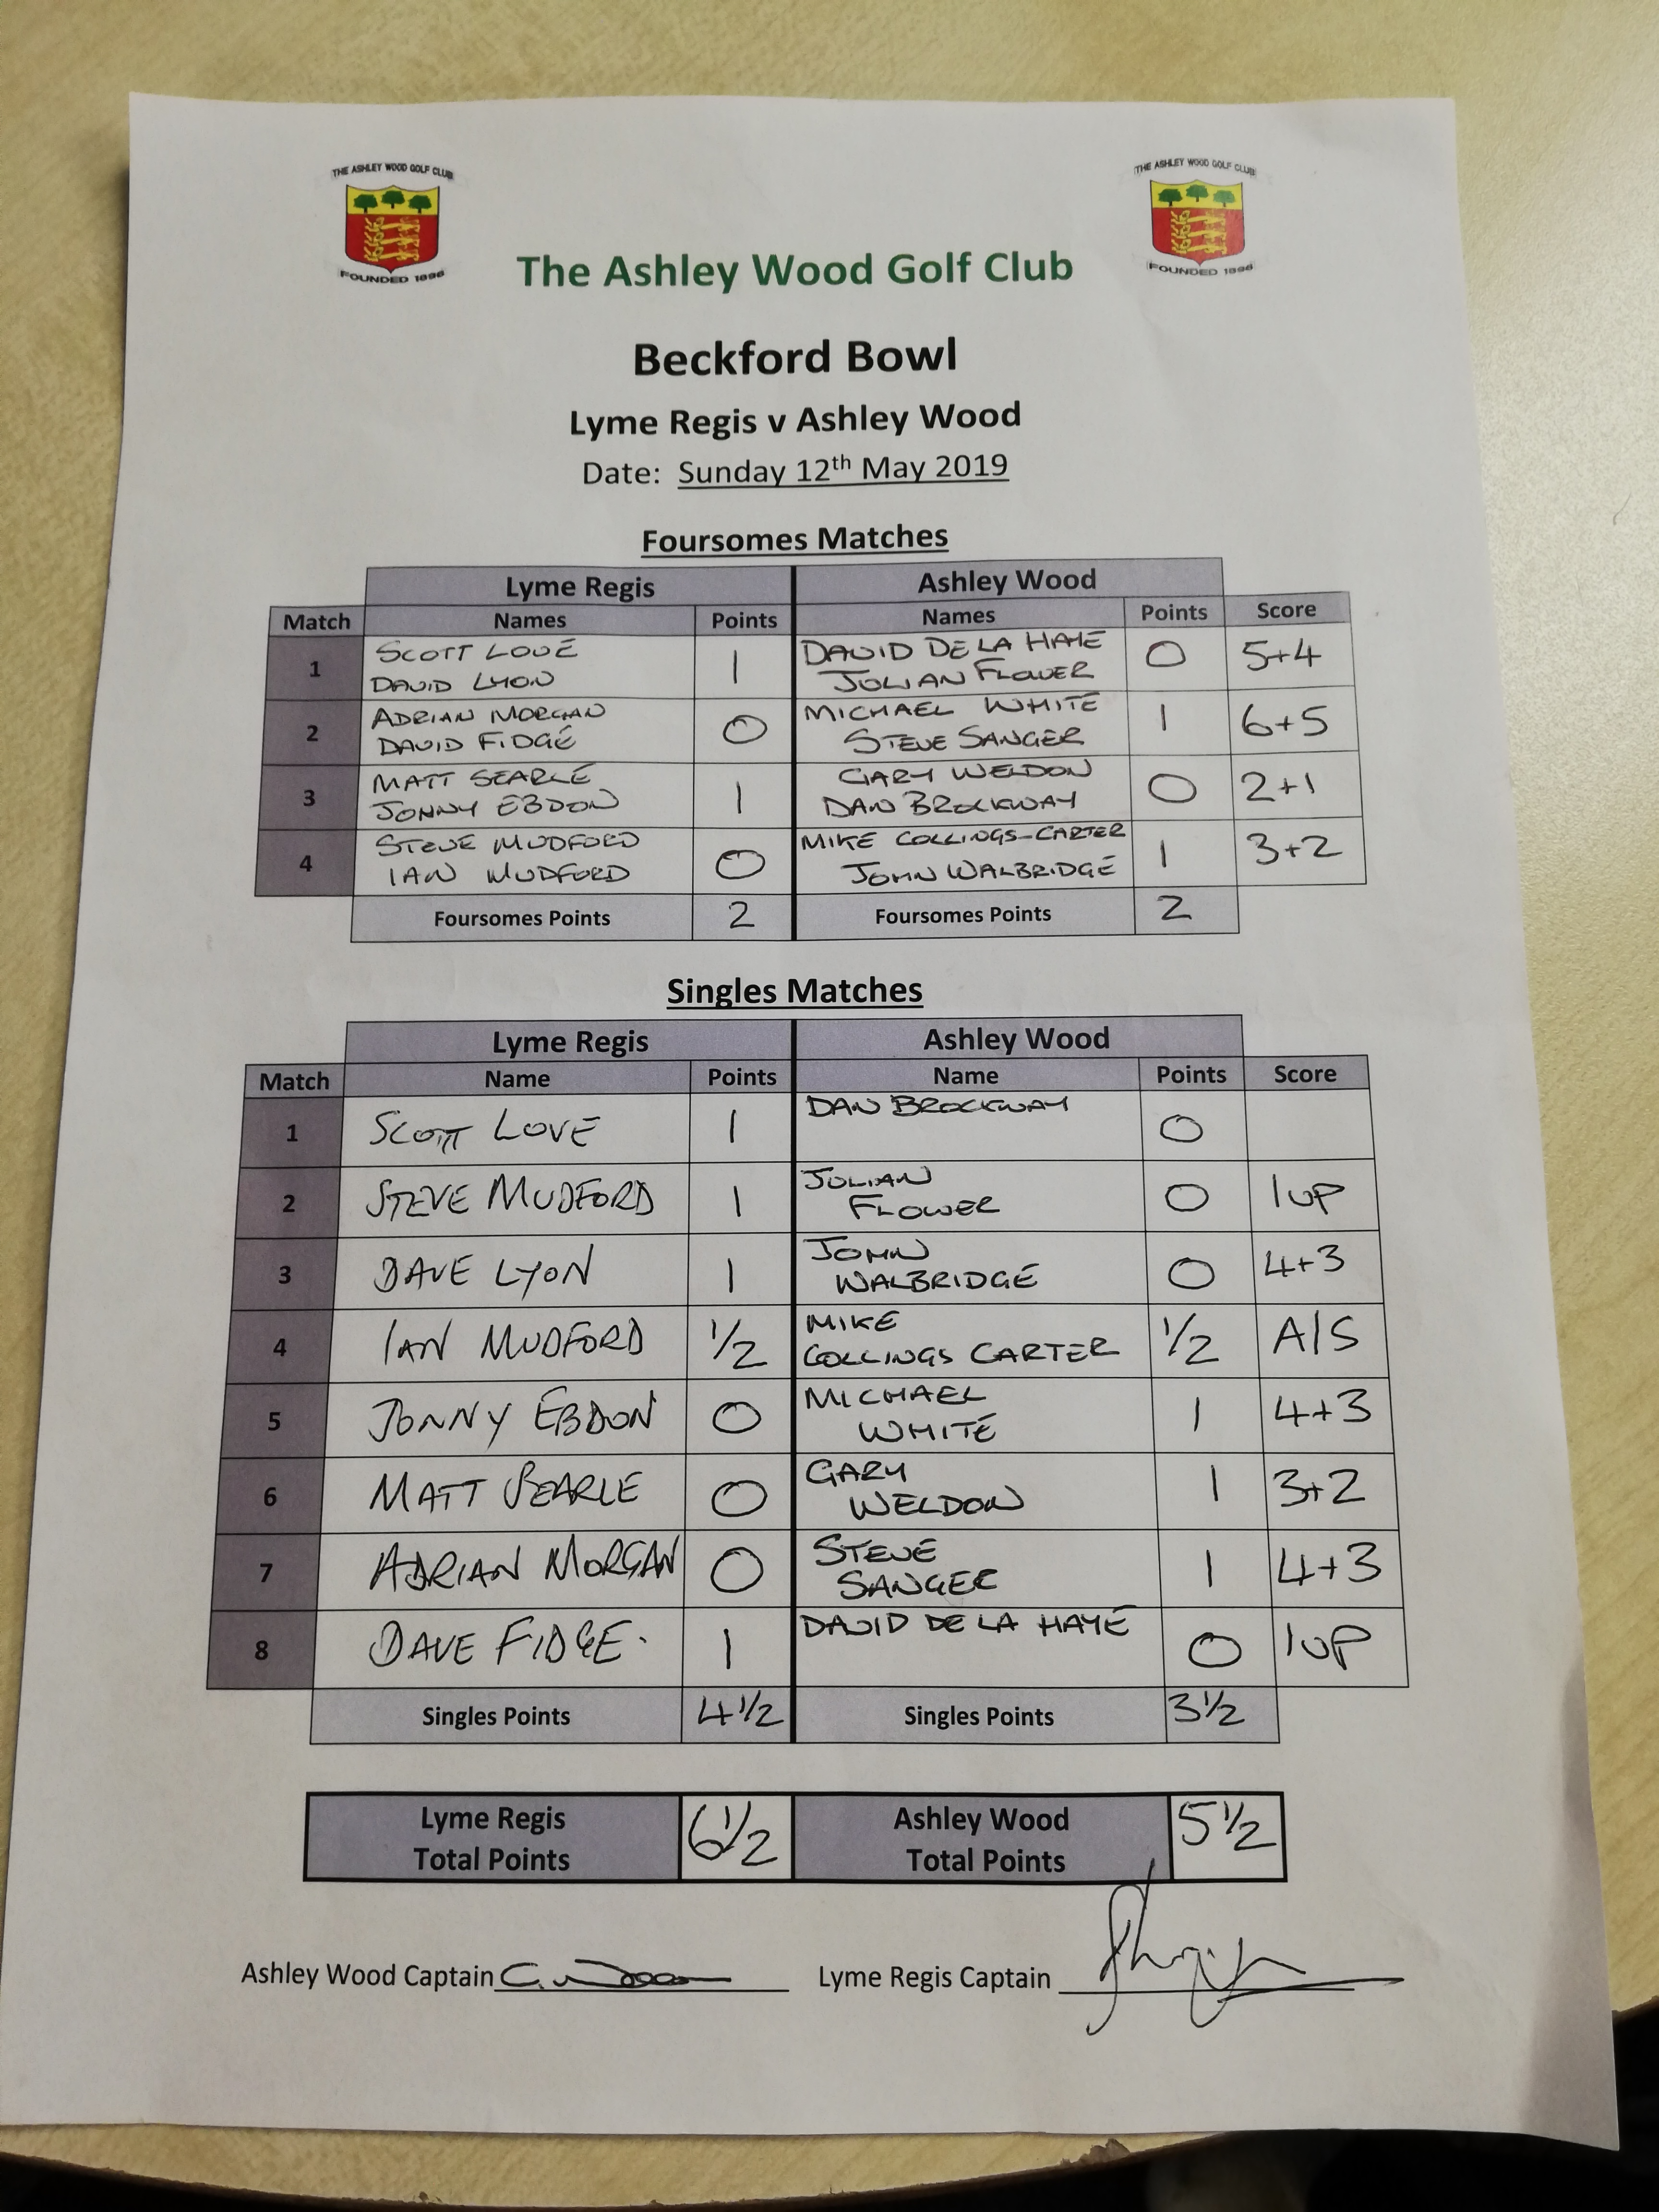 THE ASHLEY WOOD GOLF CLUB
FOUNDED 1896
THE ASHLEY WOOD GOLF CLUB
FOUNDED 1896
The Ashley Wood Golf Club
Beckford Bowl
Lyme Regis v Ashley Wood
Date: Sunday 12th May 2019
Foursomes Matches
Lyme Regis Ashley Wood
Match Names Points Names Points Score
1 SCOTT LOVE DAVID LYON 1 DAVID DE LA HAYE JULIAN FLOWER 0 5+4
2 ADRIAN MORGAN DAVID FIDGE 0 MICHAEL WHITE STEVE SANGER 1 6+5
3 MATT SEARLE JONNY EBDON 1 GARY WELDON DAN BROCKWAY 0 2+1
4 STEVE MUDFORD IAN MUDFORD 0 MIKE COLLINGS-CARTER JOHN WALBRIDGE 1 3+2
Foursomes Points 2 Foursomes Points 2
Singles Matches
Lyme Regis Ashley Wood
Match Name Points Name Points Score
1 SCOTT LOVE 1 DAN BROCKWAY 0
2 STEVE MUDFORD 1 JULIAN FLOWER 0 1UP
3 DAVE LYON 1 JOHN WALBRIDGE 0 4+3
4 IAN MUDFORD 1/2 MIKE COLLINGS CARTER 1/2 A/S
5 JONNY EBDON 0 MICHAEL WHITE 1 4+3
6 MATT SEARLE 0 GARY WELDON 1 3+2
7 ADRIAN MORGAN 0 STEVE SANGER 1 4+3
8 DAVE FIDGE. 1 DAVID DE LA HAYE 0 1UP
Singles Points 4 1/2 Singles Points 3 1/2
Lyme Regis Total Points 6 1/2 Ashley Wood Total Points 5 1/2
Ashley Wood Captain Lyme Regis Captain